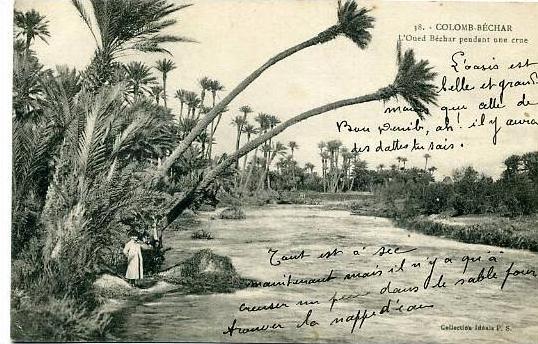 38. - COLOMB-BÉCHAR
L'Oued Béchar pendant une crue
L'oasis est
belle et grande
mais que celle de
Bou Denib, ah! il y aura
des dattes tu sais.
Tout est à sec
maintenant mais il n'y a qu'à
creuser un peu dans le sable pour
trouver la nappe d'eau
Collection Idéale P. S.